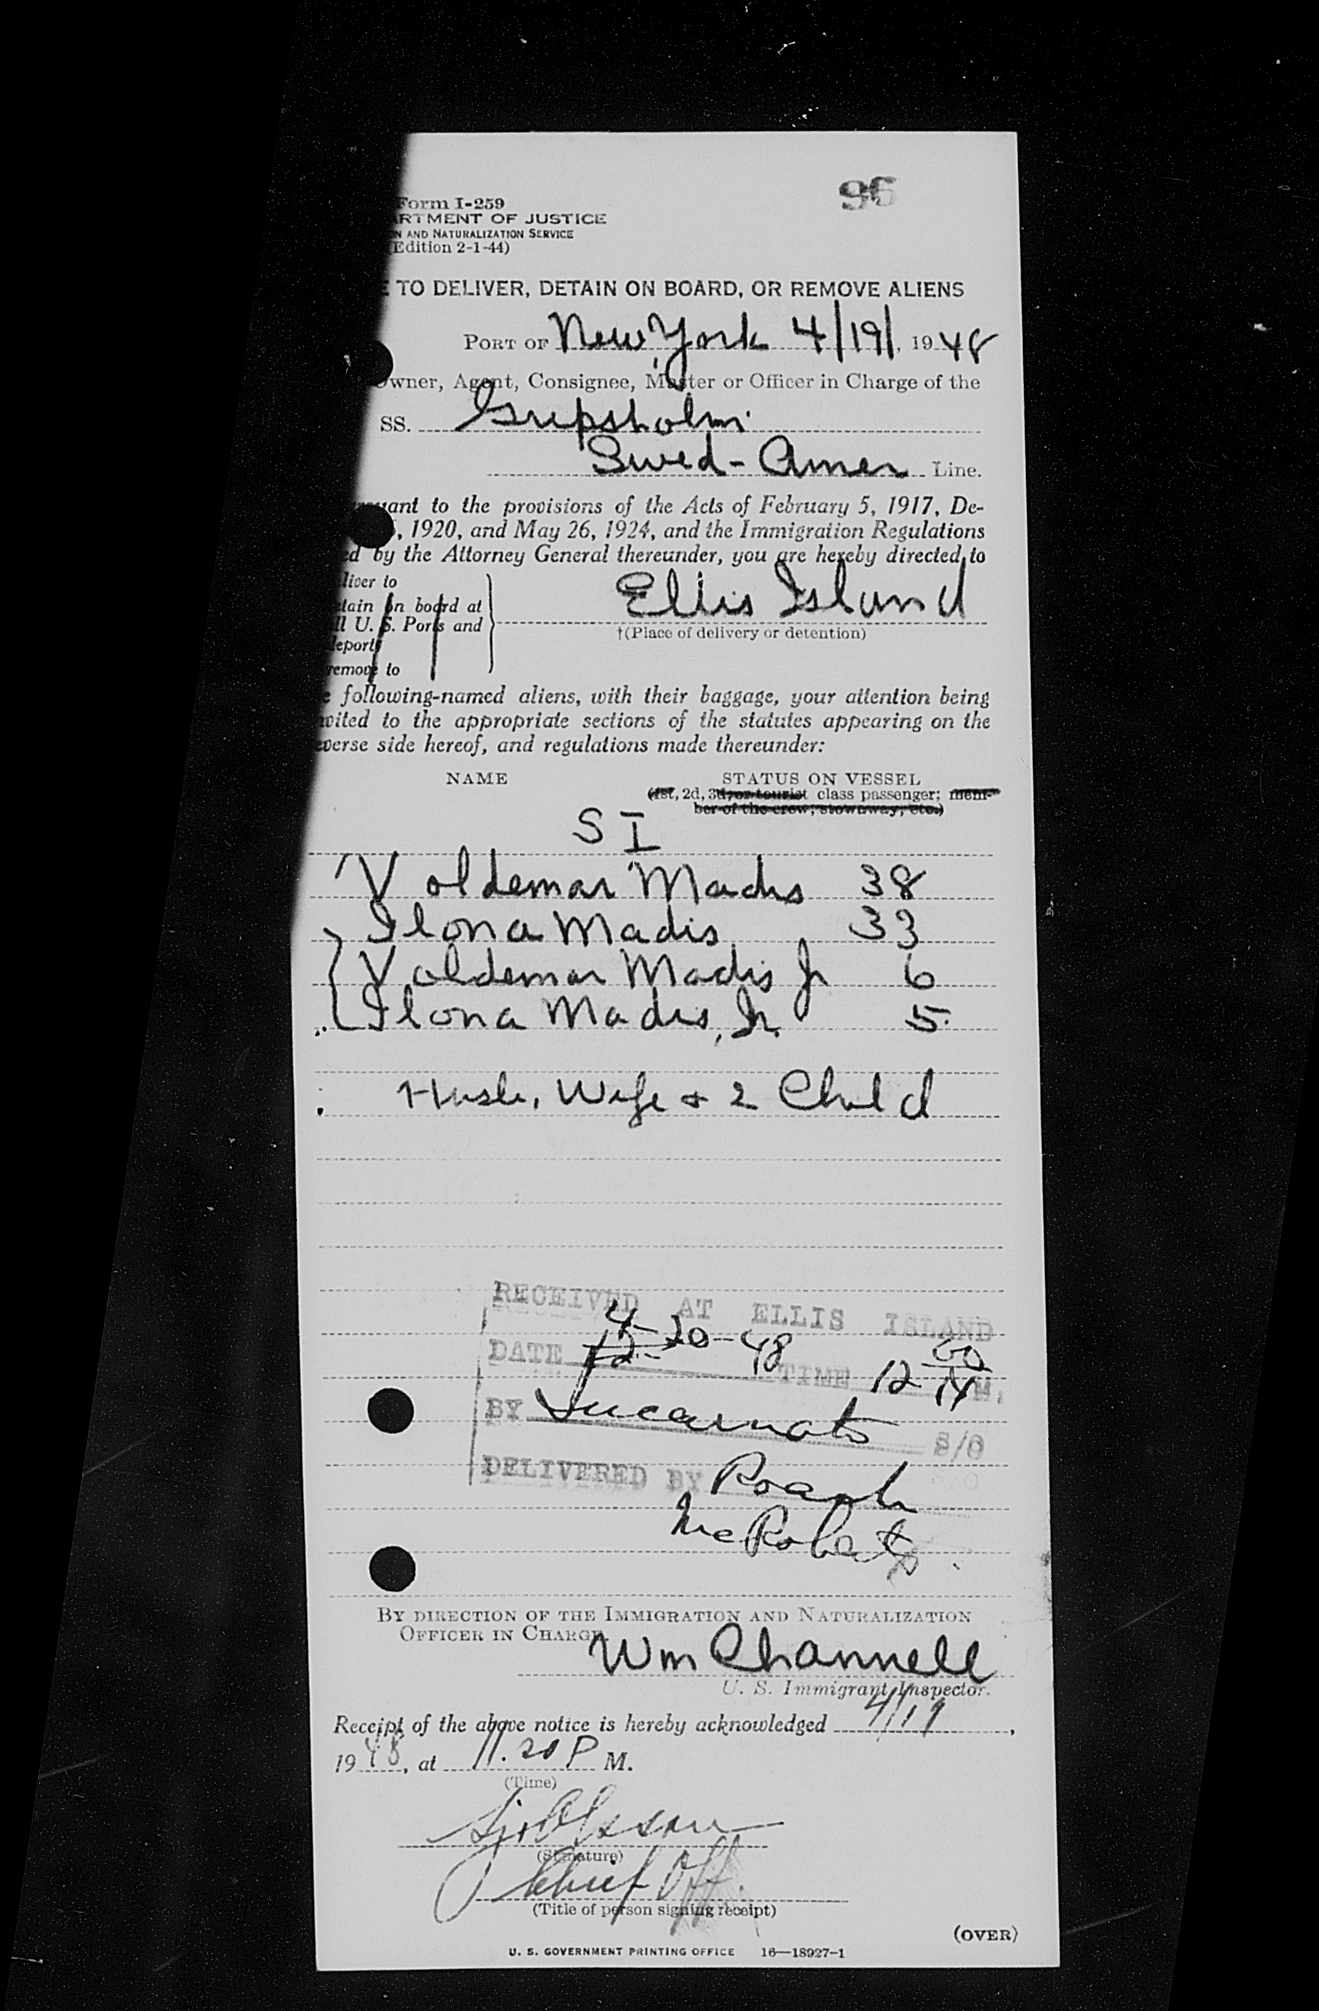 96
Form I-259
ARTMENT OF JUSTICE
N AND NATURALIZATION SERVICE
(Edition 2-1-44)
E TO DELIVER, DETAIN ON BOARD, OR REMOVE ALIENS
PORT OF New York 4/19/, 1948
Owner, Agent, Consignee, Master or Officer in Charge of the
SS. Gripsholm
Swed-Amer Line.
rsuant to the provisions of the Acts of February 5, 1917, De-
, 1920, and May 26, 1924, and the Immigration Regulations
ed by the Attorney General thereunder, you are hereby directed to
liver to
tain on board at
ll U. S. Ports and
deport
remove to
Ellis Island
†(Place of delivery or detention)
e following-named aliens, with their baggage, your attention being
nvited to the appropriate sections of the statutes appearing on the
everse side hereof, and regulations made thereunder:
NAME STATUS ON VESSEL
(1st, 2d, 3d, or tourist class passenger; mem-
ber of the crew; stowaway, etc.)
S I
Voldemar Madis 38
Ilona Madis 33
Voldemar Madis Jr 6
Ilona Madis, Jr. 5
Husb, Wife & 2 Child
RECEIVED AT ELLIS ISLAND
DATE 4-20-48 TIME 12 M.
BY S/O
DELIVERED BY Roach
McRoberts
BY DIRECTION OF THE IMMIGRATION AND NATURALIZATION
OFFICER IN CHARGE
Wm Channell
U. S. Immigrant Inspector.
Receipt of the above notice is hereby acknowledged 4/19,
1948, at 11.20 P M.
(Time)
(Signature)
Chief Off.
(Title of person signing receipt)
(OVER)
U. S. GOVERNMENT PRINTING OFFICE 16—18927-1